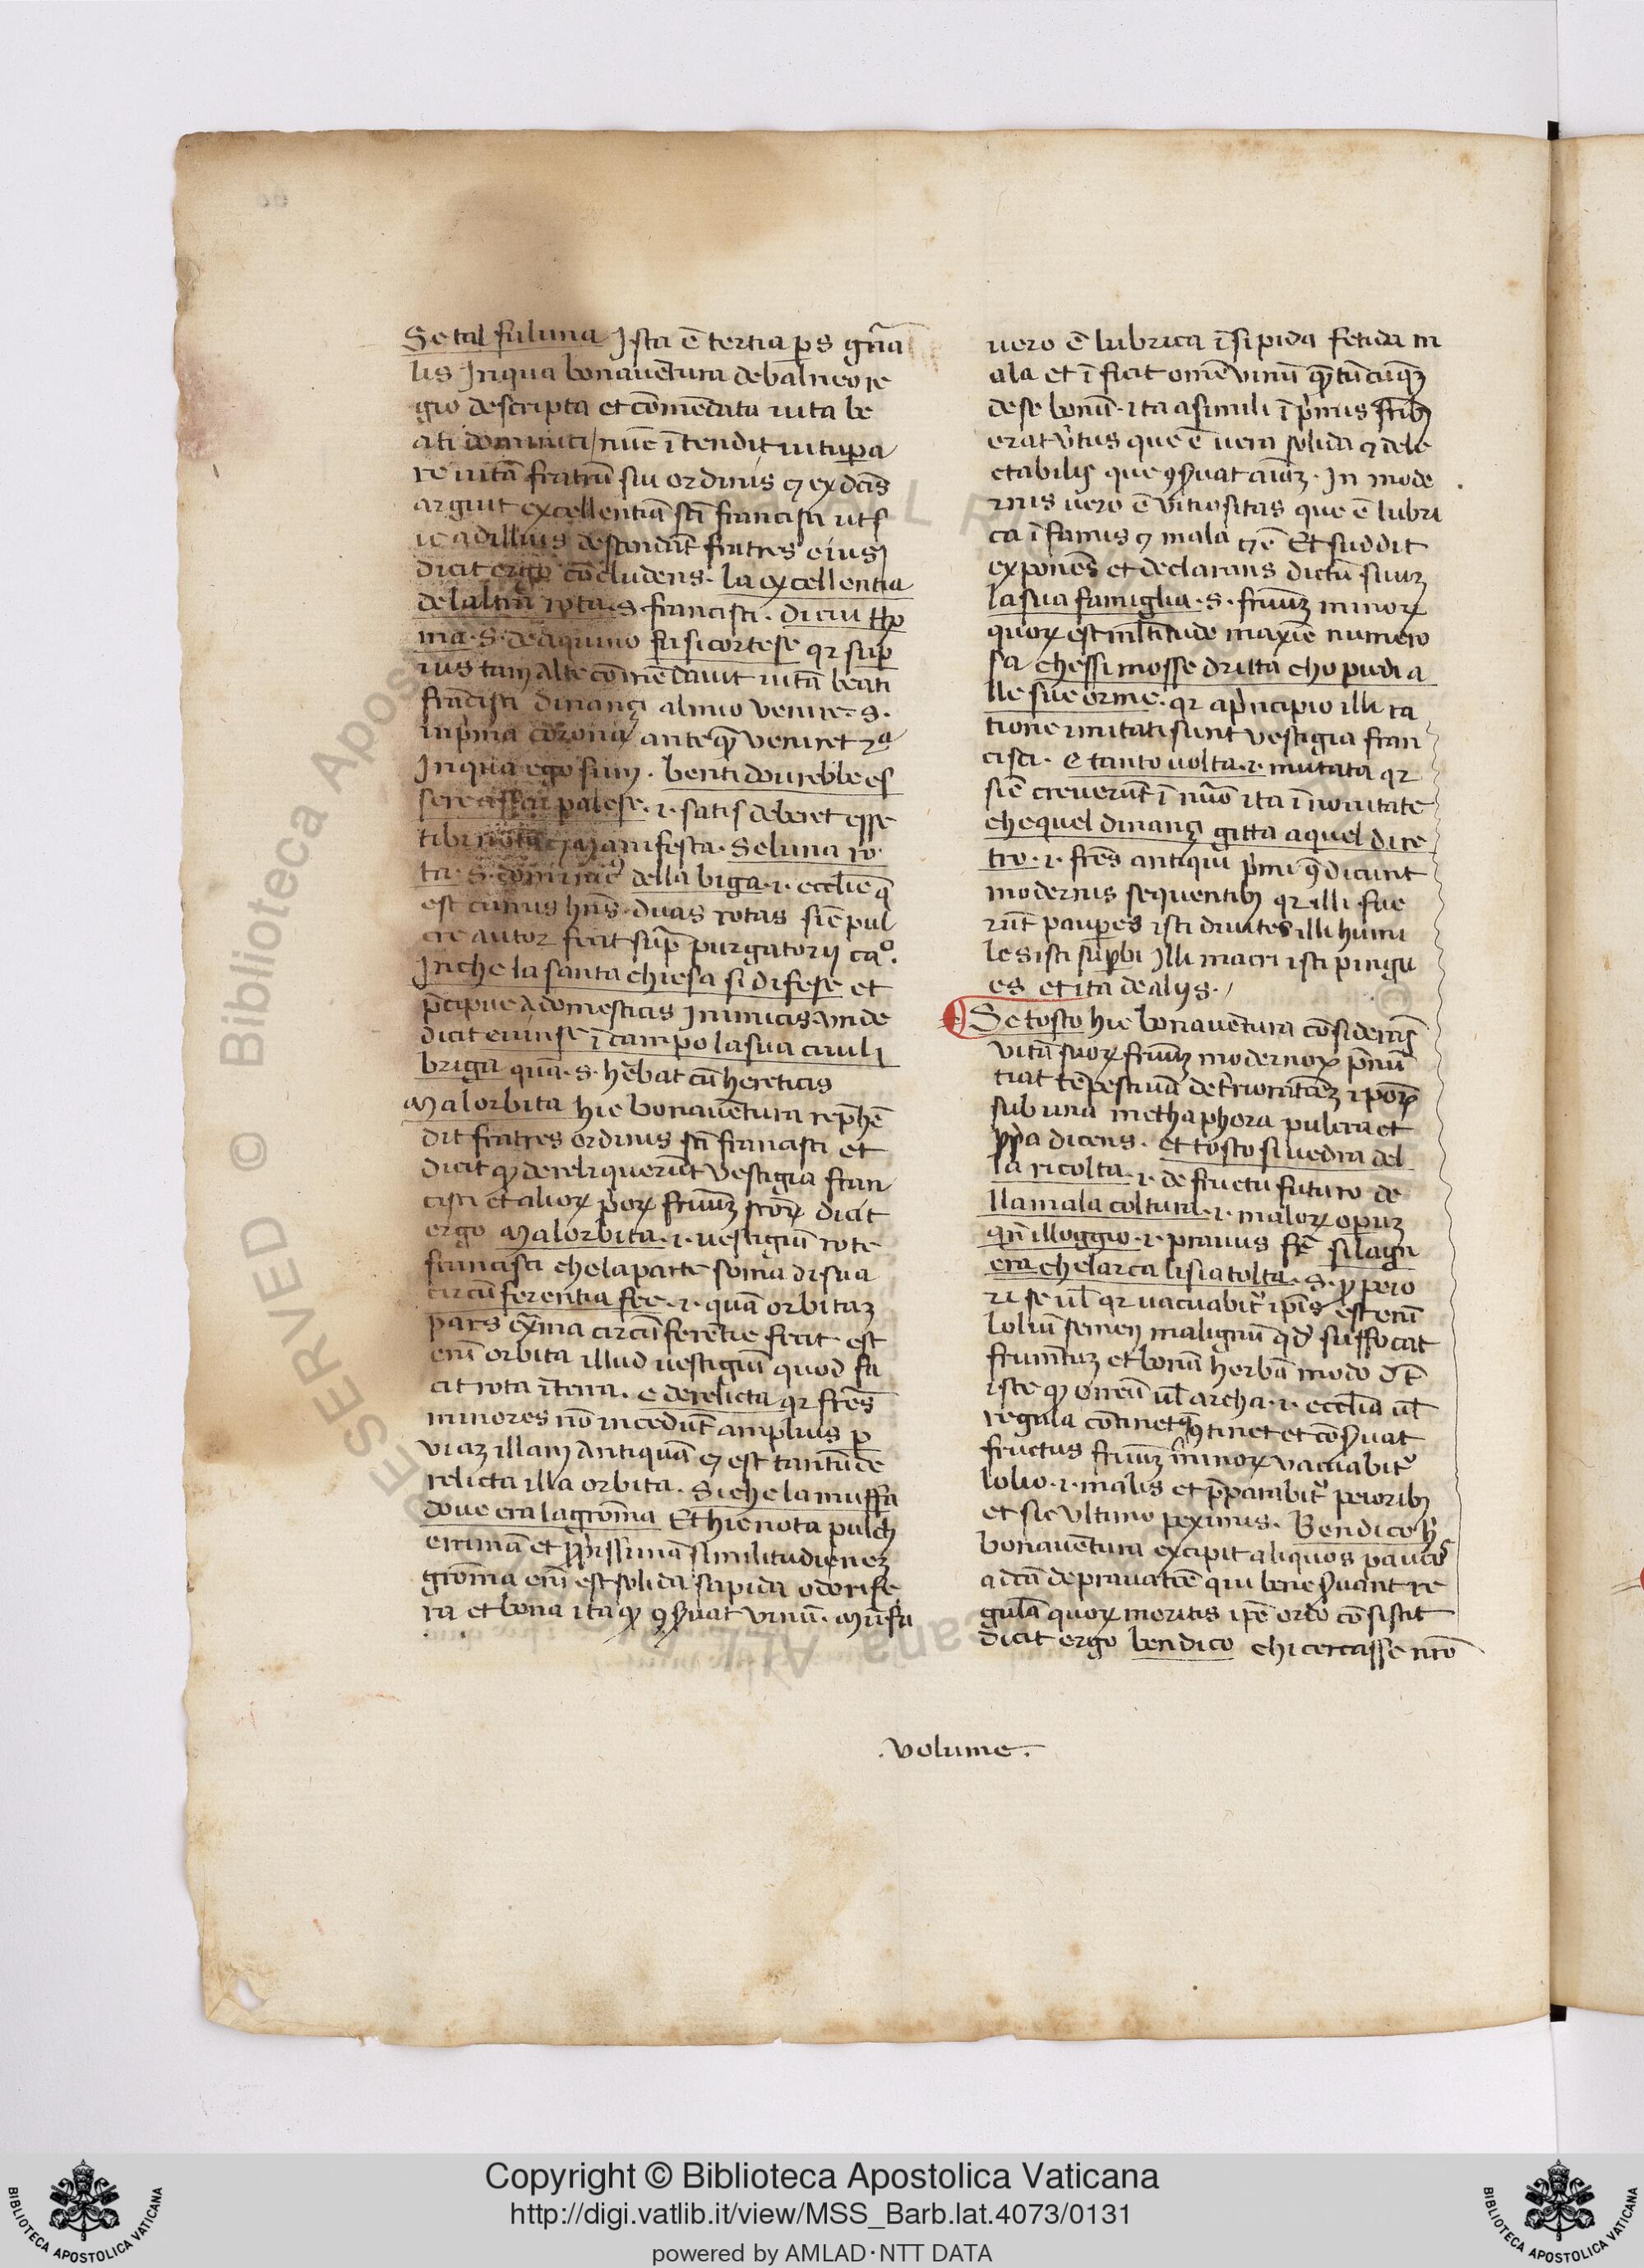 Se tal fu luna Ista ē tertia ps gn̄a
lis In qua bonauētura de balneo re
gio descripta et cōmēdata uita be
ati dominici / nūc ītendit uitupa
re uitā fratrū sui ordinis ⁊ ex dc̄is
arguit excellentiā sc̄i francisci ut s
ic ad illius descendāt fratres eius
dicit ergo cōcludens. la excellentia
de laltra rota .s. francisci. di cui tho
ma .s. de aquino fu si cortese qr sup
ius tam alte cōmēdauit uitā beati
frācisci dinançi al mio venire .s.
in pima corona ante qͣ veniret 2ͣ
In qua ego sum. ben ti dourebbe es
sere assai palese .i. satis deberet esse
tibi nota ⁊ manifesta. Se luna ro
ta .s. dominici della biga .i. ecclīe q̄
est currus hn̄s duas rotas sic̄ pul
cre autor fecit supͣ purgatorij caº.
In che la santa chiesa si difese et
p̄cipue a domesticis Inimicis vnde
dicit e uinse ī campo la sua ciuil
briga quā .s. hēbat cū hereticis
Ma lorbita hic bonauētura rephē
dit fratres ordinis sc̄i francisci et
dicit qꝫ dereliquerūt vestigia fran
cisci et alioꝝ p̄oꝝ fruūꝫ sc̄oꝝ dicit
ergo Ma lorbita .i. uestigiū rote
francisci che la parte soma di sua
circūferentia fee .i. quā orbitaꝫ
pars ex̄ma circūferētie fecit est
enī orbita illud uestigiū quod fa
cit rota ī terra. e derelicta qr frēs
minores nō incedūt amplius p
viaꝫ illam antiquā ⁊ est tantū de
relicta illa orbita. Si che la muffa
doue era la groma Et hic nota pulch
errimā et ppissimā similitudienēꝫ
groma enī est solida sapida odorife
ra et bona ita qꝫ ꝯseruat vinū. Mufa
uero ē lubrica īsipida fetida m
ala et īficit omē vinū qͣtūcūqꝫ
de se bonū. ita a simili ī pimis frībꝫ
erat v̄tus que ē uera solida ⁊ dele
ctabilis que ꝯseruat aīāꝫ. In mode
rnis uero ē vitiositas que ē lubri
ca īfamis ⁊ mala ⁊c̄ Et suddit
exponēs et declarans dictū suuꝫ
la sua famiglia .s. fruūꝫ minoꝝ
quoꝝ est ml̄titudo maxīe numero
sa che ssi mosse dritta cho piedi a
lle sue orme. qr a p̄ncipio illi ra
tione imitati sunt vestigia fran
cisci. e tanto uolta .i. mutata qr
sic̄ creuerūt ī nūo ita ī nouitate
che quel dinançi gitta a quel dire
tro .i. frēs antiqui p̄mi ꝯ̄dicunt
modernis sequentibꝫ qr illi fue
rūt paupes isti diuites illi humi
les isti supbi Illi macri isti pingu
es et ita de alijs.
Se tosto hic bonauētura cōsiderās
vitā suoꝝ fruūꝫ modernoꝝ p̄nū
tiat tēpestiuā deterioratōeꝫ ip̄oꝝ
sub una methaphora pulcra et
ppa dicens. et tosto si uedra del
la ricolta .i. de fructu futuro de
lla mala coltura .i. maloꝝ opuꝫ
qn̄ il loggio .i. prauus fr̄ si lagn
era che larca li sia tolta .s. ꝓ pero
ri se ul̄ qr uacuabit̄ ip̄is est enī
loliū semen malignū qd̄ suffocat
frumētuꝫ et bonā herbā modo d̄t
iste qꝫ orreū ul̄ archa .i. ecclīa ul̄
regula continet ꝯtinet et cōseruat
fructus fruūꝫ minoꝝ vacuabit̄
lolio .i. malis et pparabit̄ peioribꝫ
et sic ultimo pexīmis. Ben dico hic
bonauētura excipit aliquos paucos
a dc̄a deprauatōe qui bene seruant re
gulā quoꝝ meritis ip̄e ordo cōsistit
dicit ergo ben dico chi cercasse nr̄o
.volume.
Copyright © Biblioteca Apostolica Vaticana
http://digi.vatlib.it/view/MSS_Barb.lat.4073/0131
powered by AMLAD·NTT DATA
BIBLIOTECA APOSTOLICA VATICANA
BIBLIOTECA APOSTOLICA VATICANA